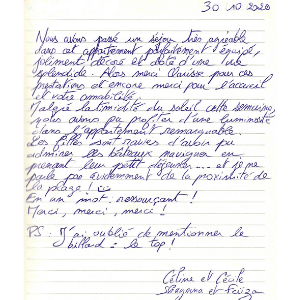 30 10 2020
Nous avons passé un séjour très agréable
dans cet appartement parfaitement équipé,
joliment décoré et doté d'une vue
splendide. Alors merci Clarisse pour ces
prestations et encore merci pour l'accueil
et votre amabilité.
Malgré la timidité du soleil cette semaine,
nous avons pu profiter d'une luminosité
dans l'appartement remarquable.
Les filles sont ravies d'avoir pu
admirer les bateaux naviguer en
prenant leur petit déjeuner... et je ne
parle pas évidemment de la proximité de
la plage !
En un mot : ressourçant !
Merci, merci, merci !
PS : J'ai oublié de mentionner le
billard : le top !
Céline et Cécile
et